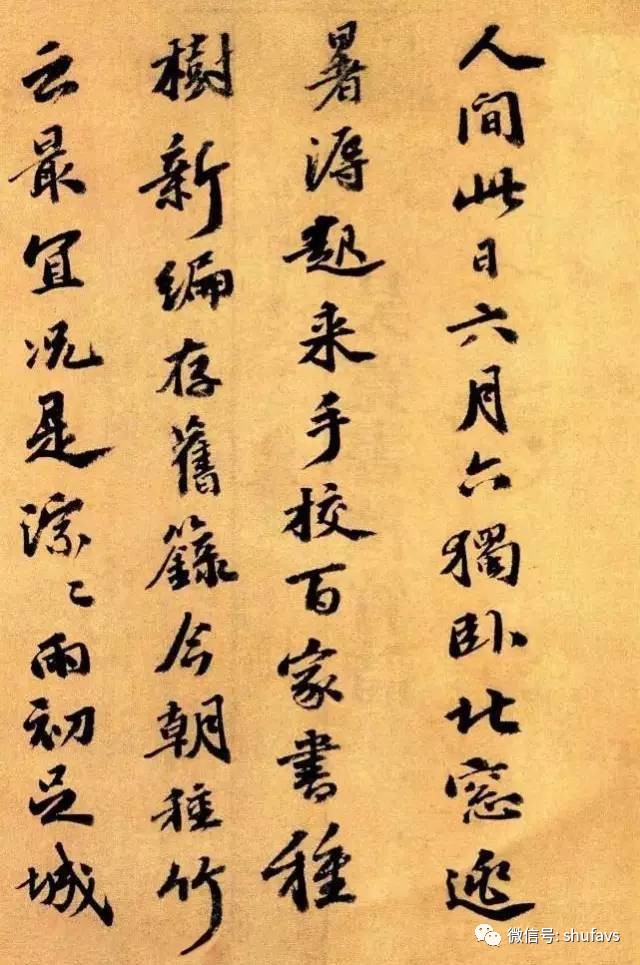 人間此日六月六獨臥北窻逃
暑溽起来手校百家書種
樹新編存舊録今朝種竹
云最宜況是淙〻雨初足城
微信号: shufavs